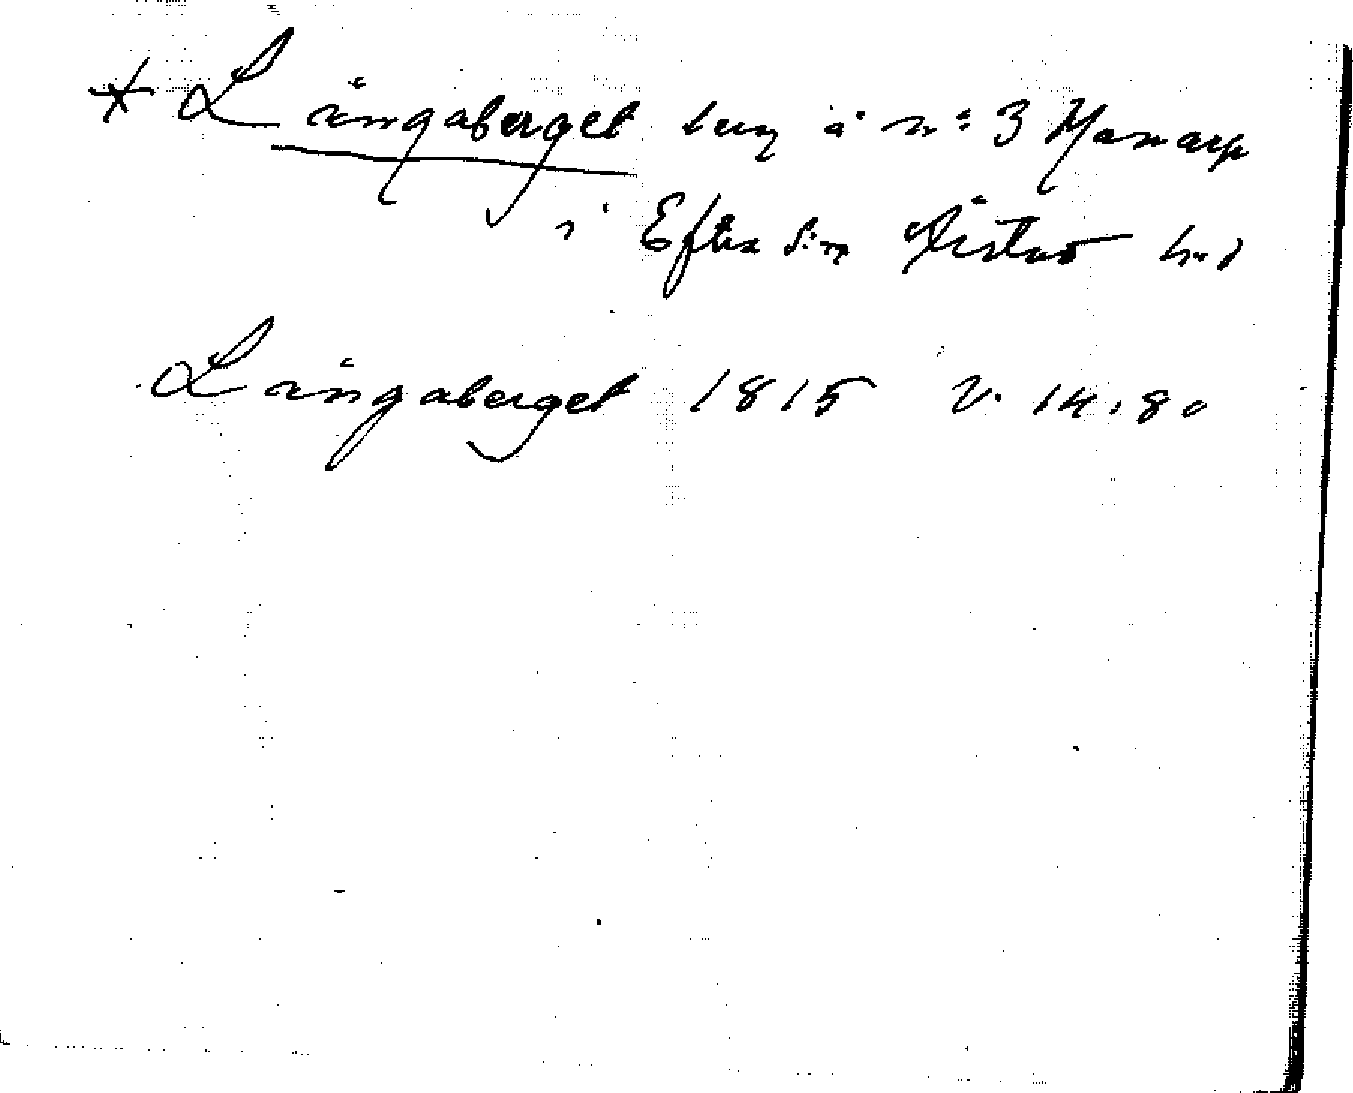 * Långaberget berg å nº 3 Mamarp
i Eftra s:n Årstad hd
Långaberget 1815 V. 14.80